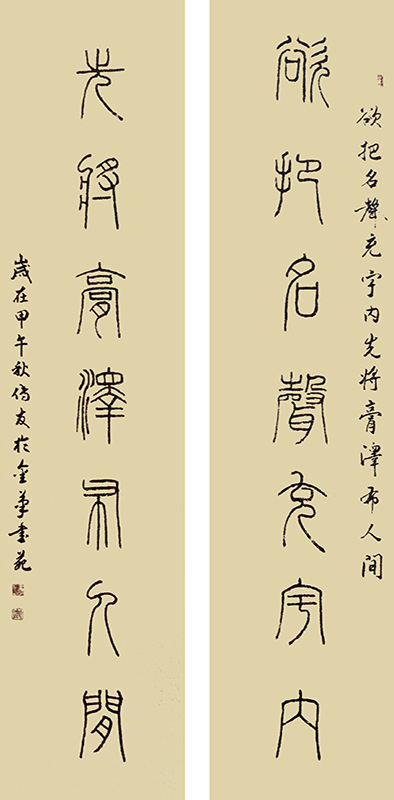 欲把名聲充宇内先将膏澤布人间
欲把名聲充宇内
先將膏澤布人間
嵗在甲午秋傳友於金華書苑